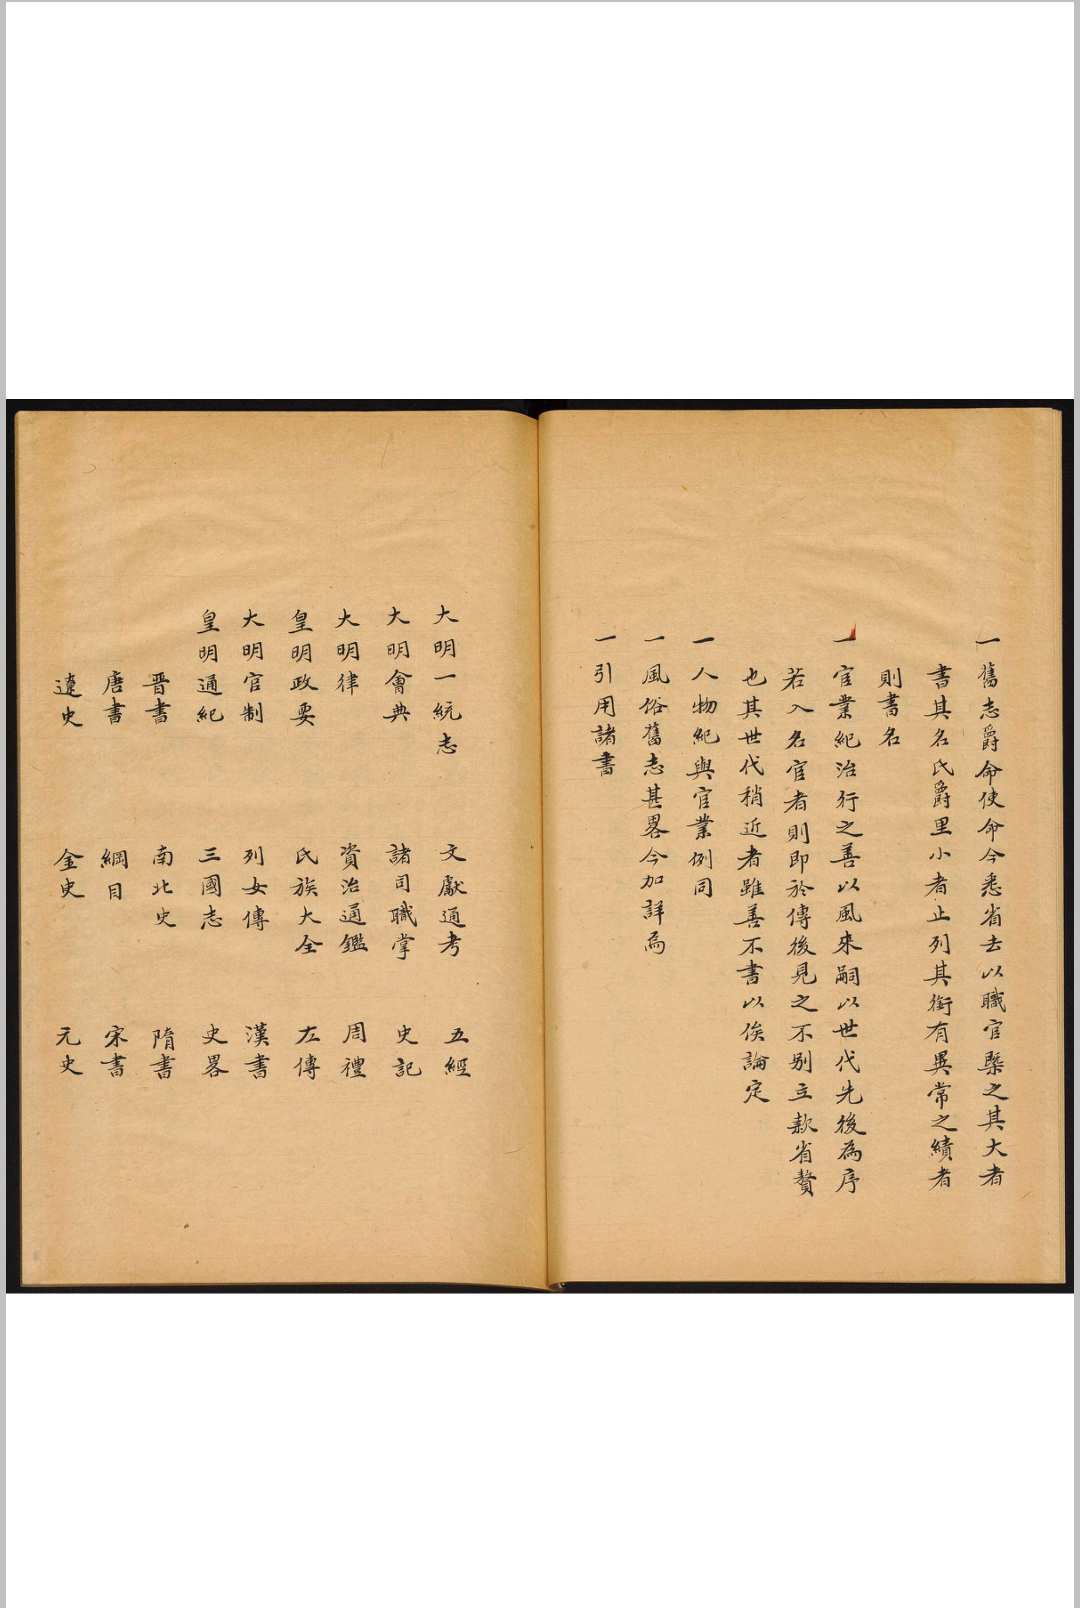 一舊志爵命使命今悉省去以職官槩之其大者
書其名氏爵里小者止列其銜有異常之績者
則書名
一官業紀治行之善以風來嗣以世代先後為序
若入名官者則即於傳後見之不别立款省贅
也其世代稍近者雖善不書以俟論定
一人物紀與官業例同
一風俗舊志甚畧今加詳焉
一引用諸書
大明一統志 文獻通考 五經
大明會典 諸司職掌 史記
大明律 資治通鑑 周禮
皇明政要 氏族大全 左傳
大明官制 列女傳 漢書
皇明通紀 三國志 史畧
晉書 南北史 隋書
唐書 綱目 宋書
遼史 金史 元史